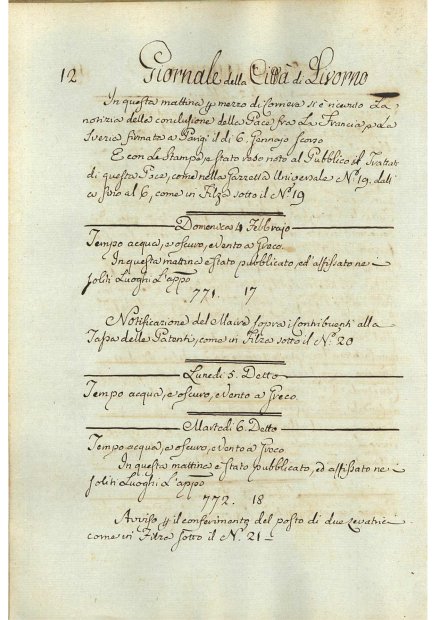 12 Giornale della Città di Livorno
In questa mattina p mezzo di Corriera si è ricevuto La
notizia della conclusione della Pace fra La Francia, e La
Svezia firmata a Parigi il dì 6. Gennajo scorso
E con La Stampa, e stato reso noto al Pubblico il Trattato
di questa Pace, come nella Gazzetta Universale N.º 19, dali
a 6, come in Filza sotto il N.º 19
Domenica 4 Febbrajo
Tempo acqua, e oscuro, e vento a Greco.
In questa mattina e stato pubblicato, ed affissato ne
soliti Luoghi L'appo
771. 17
Notificazione del Maire sopra i Contribuenti alla
Tassa delle Patenti, come in Filza sotto il N.º 20
Lunedi 5. Detto
Tempo acqua, e oscuro, e vento a Greco.
Martedi 6. Detto
Tempo acqua, e oscuro, e vento a Greco
In questa mattina e stato pubblicato, ed affissato ne
soliti Luoghi L'appo
772. 18
Avviso p il conferimento del posto di due Levatrici
come in Filza sotto il N.º 21